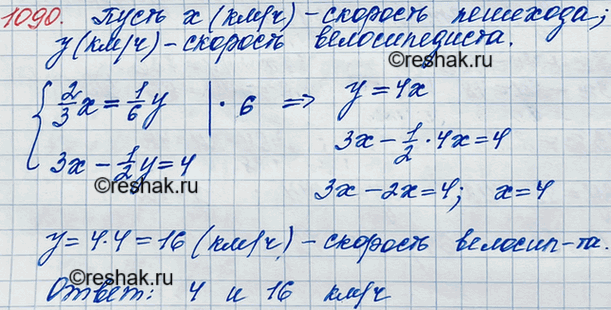 1090. Пусть x (км/ч) - скорость пешехода;
y (км/ч) - скорость велосипедиста.
©reshak.ru
{ 2/3 x = 1/6 y | · 6 => y = 4x
3x - 1/2 · 4x = 4
3x - 1/2 y = 4
©reshak.ru
3x - 2x = 4; x = 4
©reshak.ru
y = 4 · 4 = 16 (км/ч) - скорость велосип-та.
©reshak.ru
Ответ: 4 и 16 км/ч